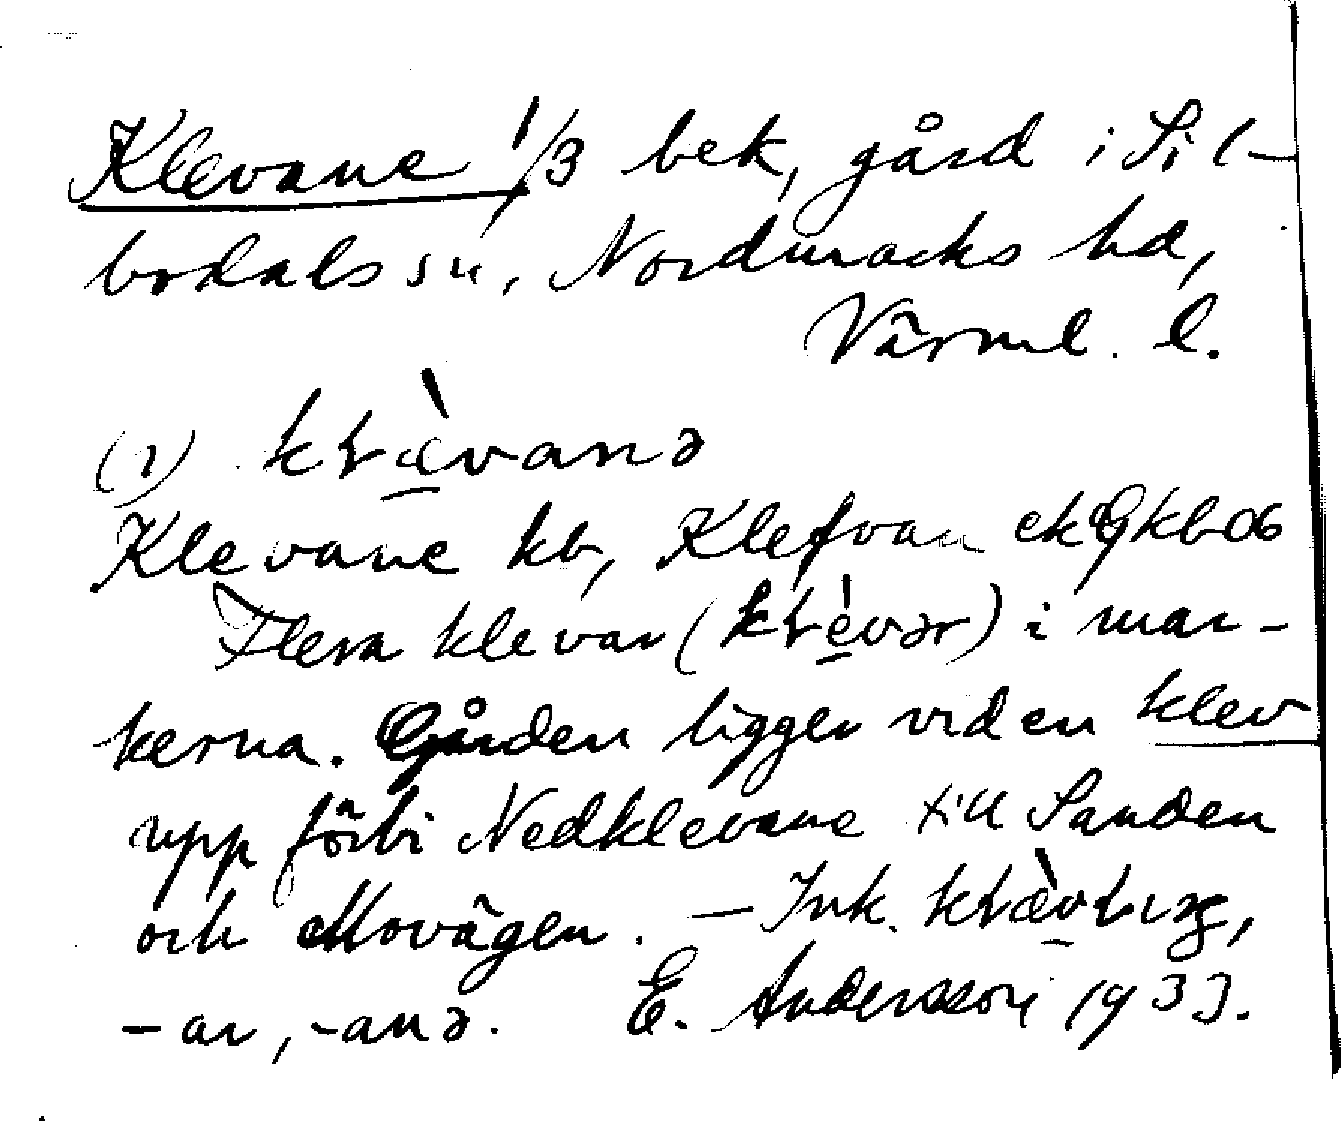 Klevane 1/3 bek, gård i Sil-
bodals sn, Nordmarks hd,
Värml. l.
(1) kɫæ̀vanə
Klevane kb, Klefvan ek Gkb06
Flera klevar (kɫèvər) i mar-
kerna. Gården ligger vid en klev
upp förbi Nedklevane till Sanden
och Movägen. – Ink. kɫæ̀vɫıŋ,
-ar, -anə. E. Andersson 1933.